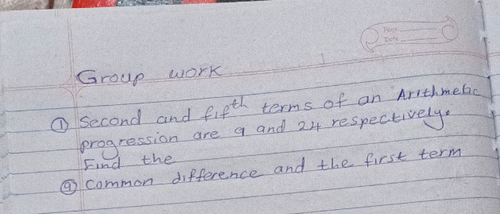 Page:
Date:
Group work
① Second and fifth terms of an Arithmetic
progression are 9 and 24 respectively.
Find the
ⓐ common difference and the first term